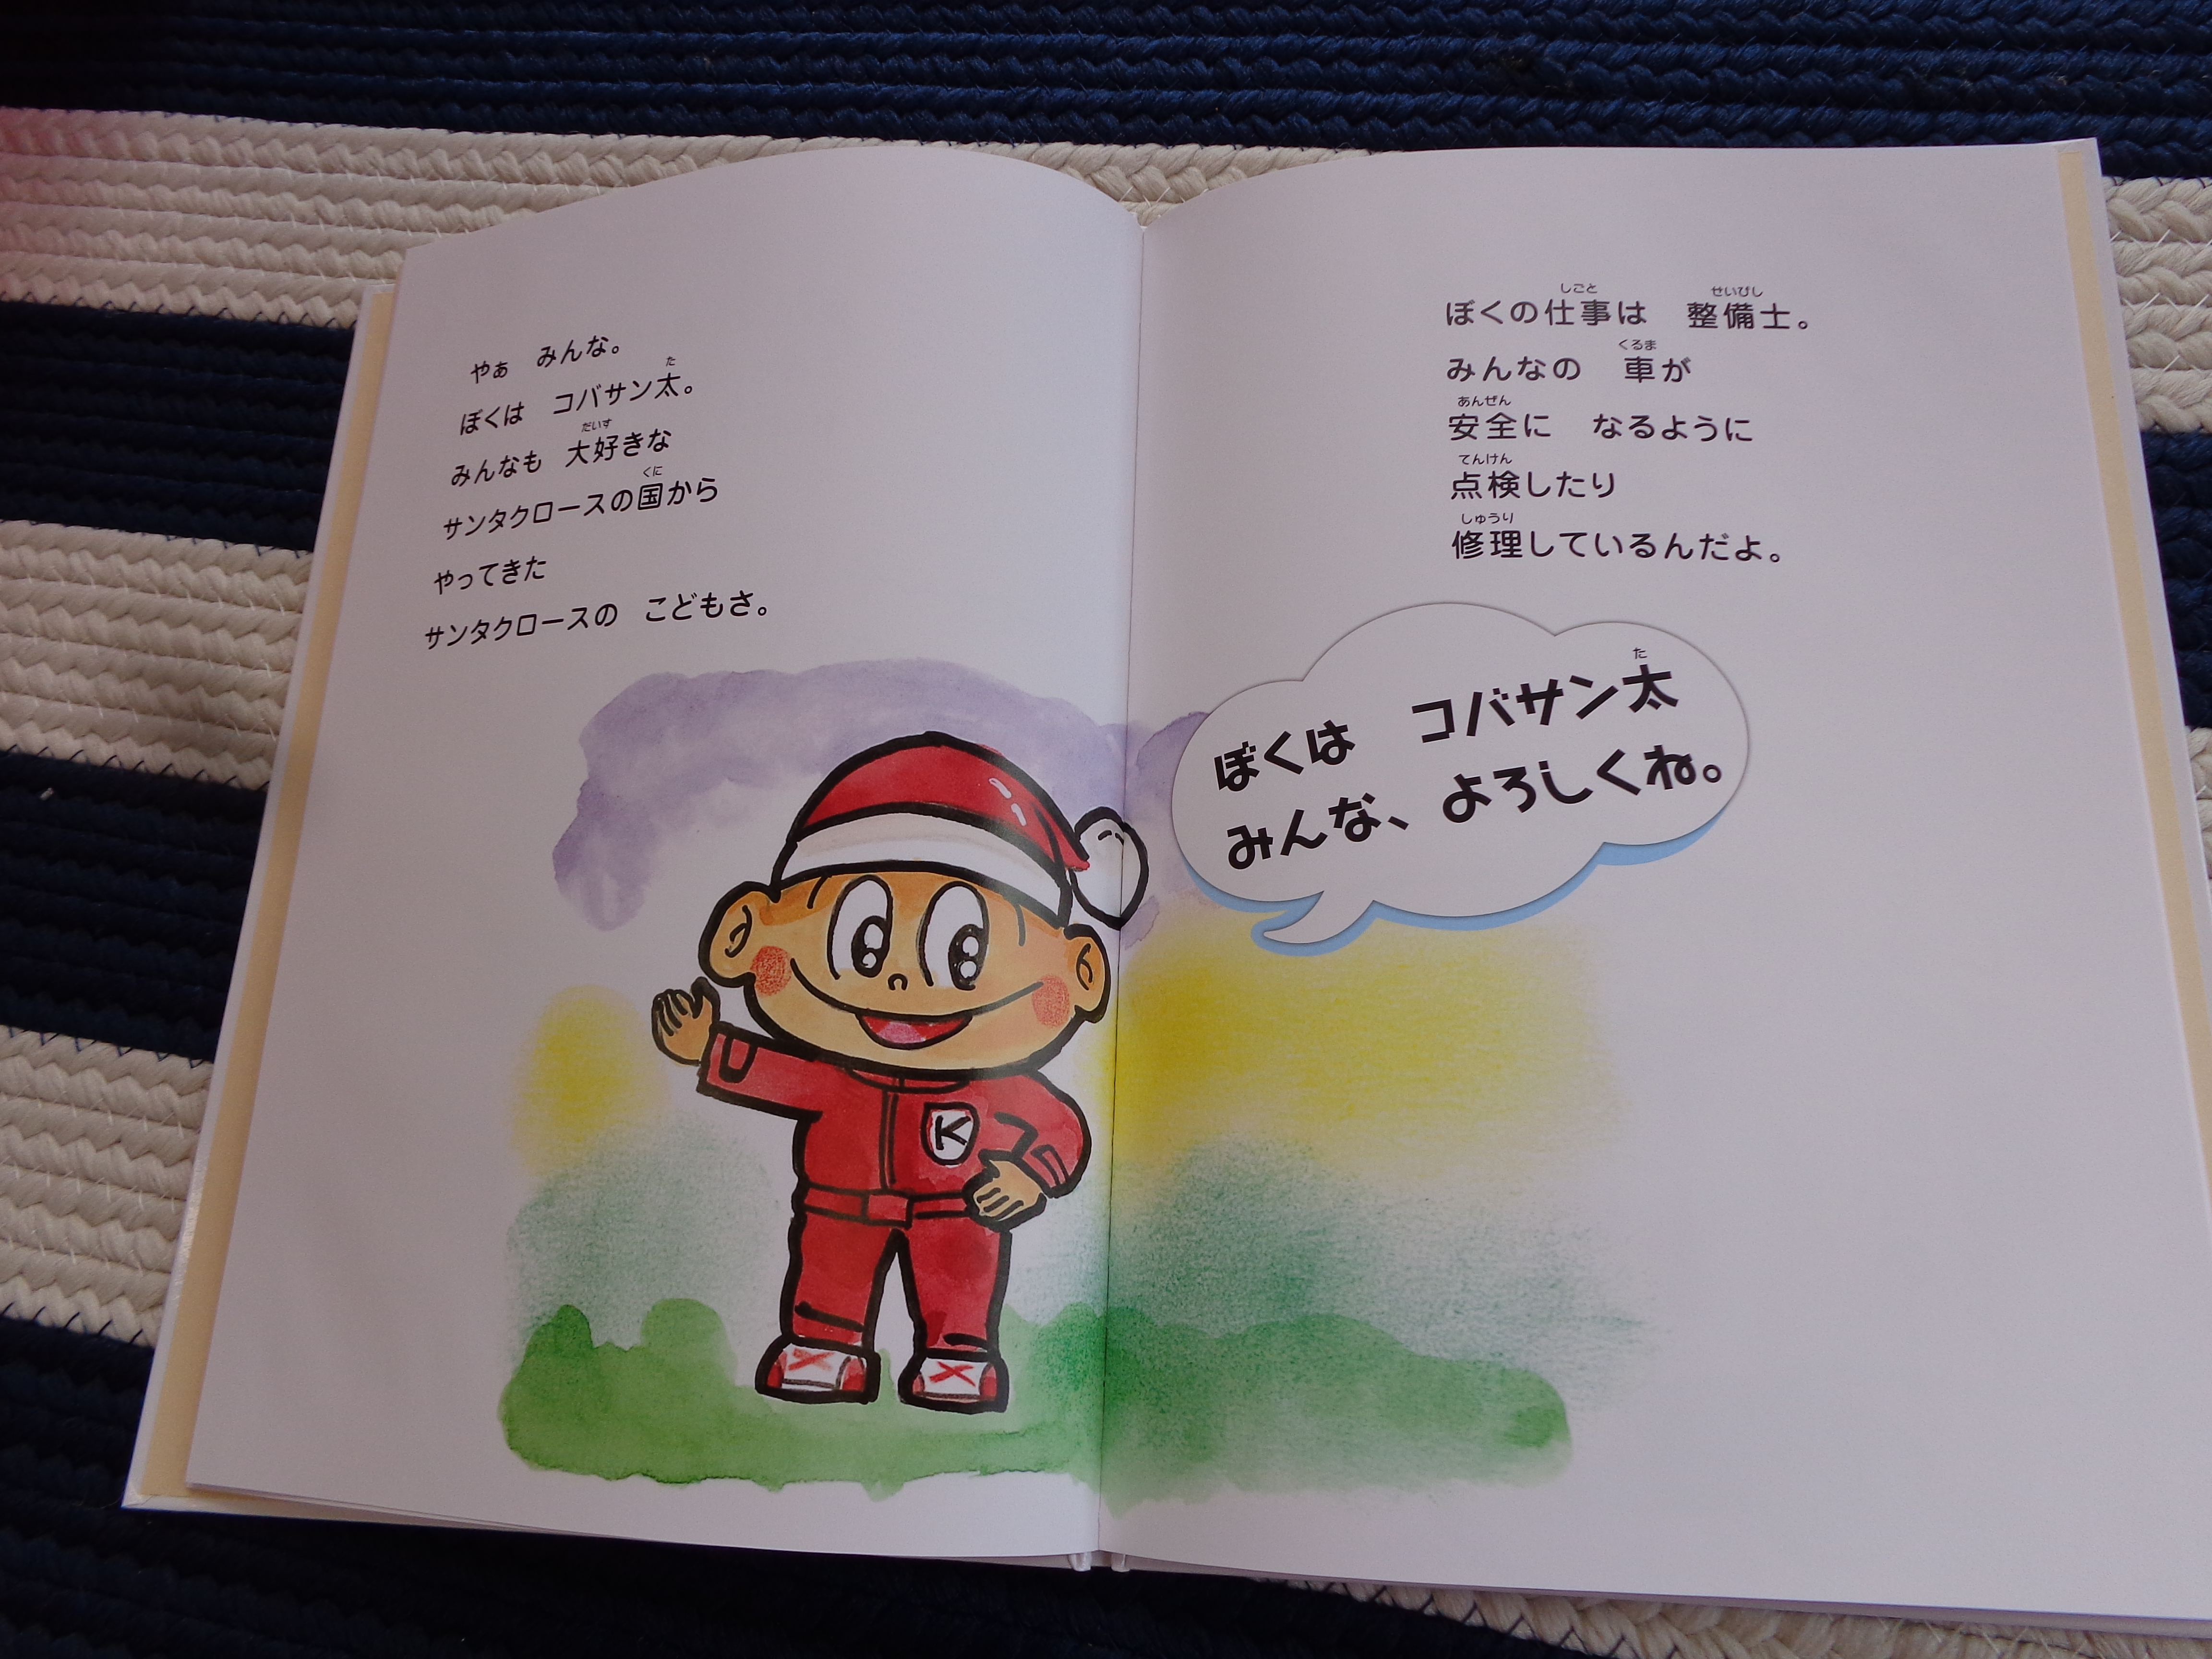 やぁ　みんな。
ぼくは　コバサン太。
みんなも　大好きな
サンタクロースの国から
やってきた
サンタクロースの　こどもさ。
ぼくの仕事は　整備士。
みんなの　車が
安全に　なるように
点検したり
修理しているんだよ。
ぼくは　コバサン太
みんな、よろしくね。
K